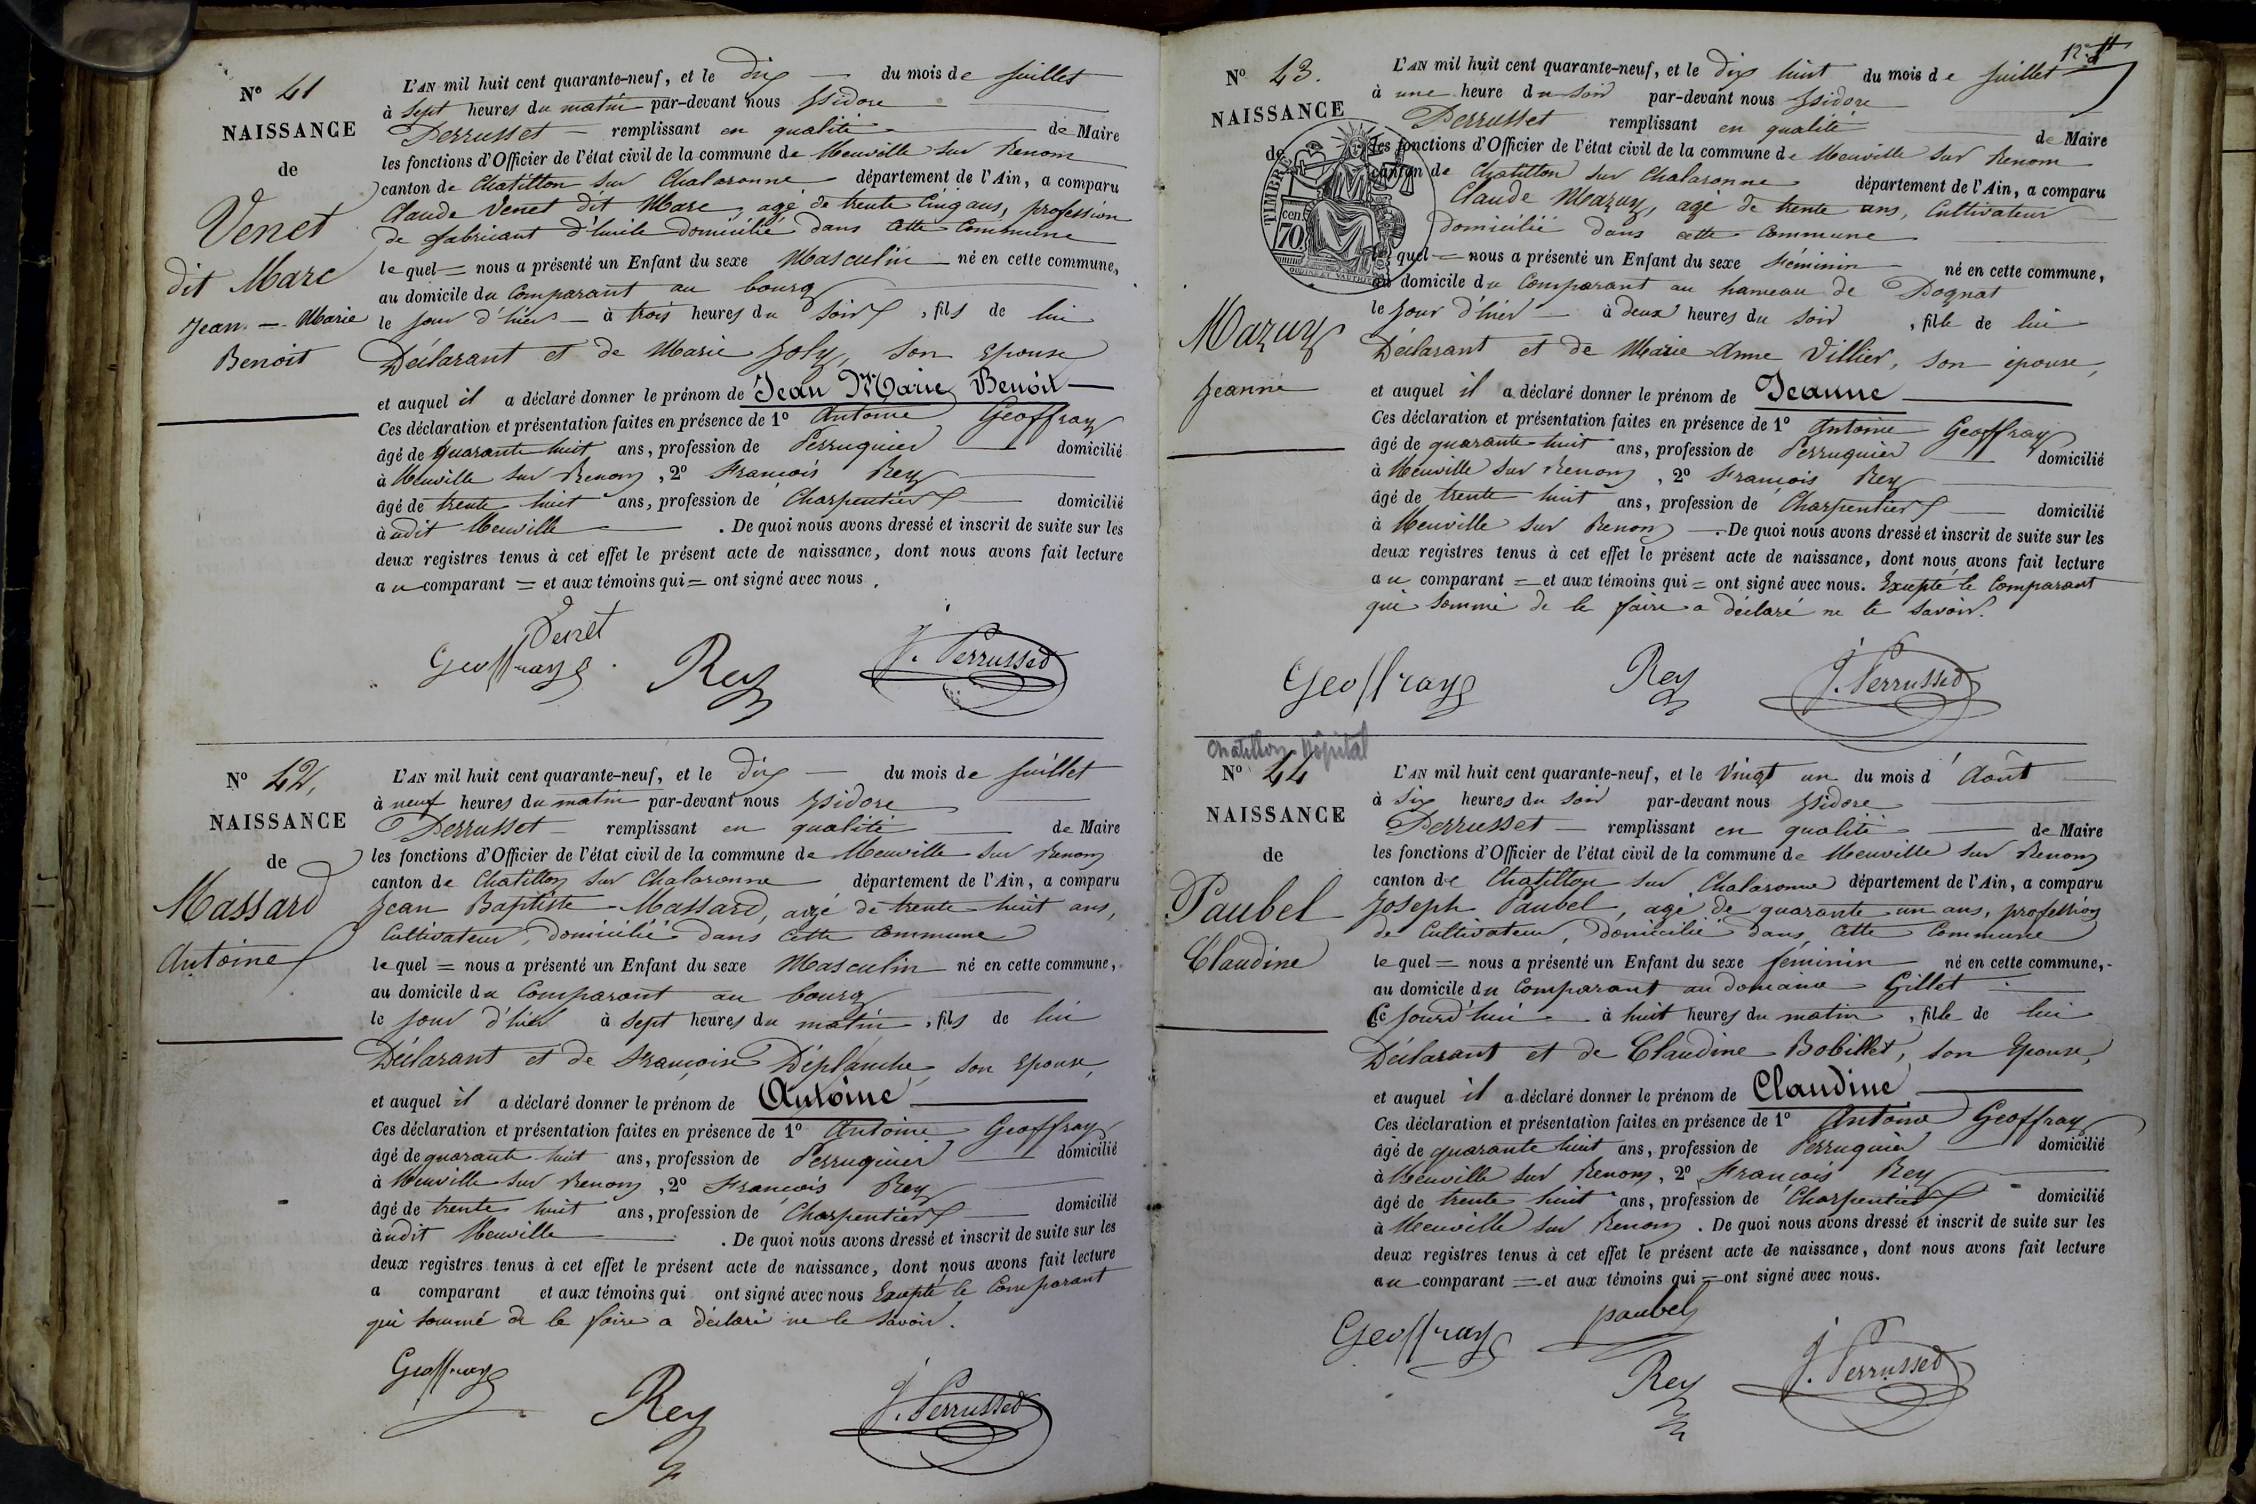 N° 41
NAISSANCE
de
Venet
dit Marc
Jean-Marie
Benoit
L'AN mil huit cent quarante-neuf, et le dix du mois de Juillet
à Sept heures du matin par-devant nous Isidore
Perrusset remplissant en qualité de Maire
les fonctions d'Officier de l'état civil de la commune de Neuville sur Renom
canton de Chatillon sur Chalaronne département de l'Ain, a comparu
Claude Venet dit Marc, agé de trente cinq ans, profession
de fabricant d'huile domicilié dans cette Commune
lequel = nous a présenté un Enfant du sexe Masculin né en cette commune,
au domicile du Comparant au bourg
le jour d'hier à trois heures du Soir, fils de lui
Déclarant et de Marie Joly, son Epouse
et auquel il a déclaré donner le prénom de Jean Marie Benoit
Ces déclaration et présentation faites en présence de 1° Antoine Geoffray
âgé de quarante huit ans, profession de Perruquier domicilié
à Neuville sur Renom, 2° François Rey
âgé de trente huit ans, profession de Charpentier domicilié
à udit Neuville. De quoi nous avons dressé et inscrit de suite sur les
deux registres tenus à cet effet le présent acte de naissance, dont nous avons fait lecture
au comparant = et aux témoins qui = ont signé avec nous.
Venet
Geoffray Rey J. Perrusset
N° 42,
NAISSANCE
de
Massard
Antoine
L'AN mil huit cent quarante-neuf, et le dix du mois de Juillet
à neuf heures du matin par-devant nous Isidore
Perrusset remplissant en qualité de Maire
les fonctions d'Officier de l'état civil de la commune de Neuville sur Renom
canton de Chatillon sur Chalaronne département de l'Ain, a comparu
Jean Baptiste Massard, agé de trente huit ans,
Cultivateur, domicilié dans cette Commune
lequel = nous a présenté un Enfant du sexe Masculin né en cette commune,
au domicile du Comparant au bourg
le jour d'hier à sept heures du matin, fils de lui
Déclarant et de Françoise Déplanche, son Epouse,
et auquel il a déclaré donner le prénom de Antoine
Ces déclaration et présentation faites en présence de 1° Antoine Geoffray
âgé de quarante huit ans, profession de Perruquier domicilié
à Neuville sur Renom, 2° François Rey
âgé de trente huit ans, profession de Charpentier domicilié
à udit Neuville. De quoi nous avons dressé et inscrit de suite sur les
deux registres tenus à cet effet le présent acte de naissance, dont nous avons fait lecture
a comparant et aux témoins qui ont signé avec nous Excepté le Comparant
qui sommé de le faire a déclaré ne le savoir.
Geoffray Rey J. Perrusset
N° 43.
NAISSANCE
de
TIMBRE
cen
70
Mazuy
Jeanne
L'AN mil huit cent quarante-neuf, et le dix huit du mois de Juillet
à une heure du soir par-devant nous Isidore
Perrusset remplissant en qualité de Maire
les fonctions d'Officier de l'état civil de la commune de Neuville sur Renom
canton de Chatillon sur Chalaronne département de l'Ain, a comparu
Claude Mazuy, agé de trente ans, Cultivateur
domicilié dans cette Commune
lequel = nous a présenté un Enfant du sexe Féminin né en cette commune,
au domicile du Comparant au hameau de Dognat
le jour d'hier à deux heures du soir, fille de lui
Déclarant et de Marie Anne Villier, son épouse,
et auquel il a déclaré donner le prénom de Jeanne
Ces déclaration et présentation faites en présence de 1° Antoine Geoffray
âgé de quarante huit ans, profession de Perruquier domicilié
à Neuville sur Renom, 2° François Rey
âgé de trente huit ans, profession de Charpentier domicilié
à Neuville sur Renom. De quoi nous avons dressé et inscrit de suite sur les
deux registres tenus à cet effet le présent acte de naissance, dont nous avons fait lecture
au comparant = et aux témoins qui = ont signé avec nous. Excepté le Comparant
qui sommé de le faire a déclaré ne le savoir.
Geoffray Rey J. Perrusset
Chatillon Hôpital
N° 44
NAISSANCE
de
Paubel
Claudine
L'AN mil huit cent quarante-neuf, et le Vingt un du mois d'Août
à six heures du soir par-devant nous Isidore
Perrusset remplissant en qualité de Maire
les fonctions d'Officier de l'état civil de la commune de Neuville sur Renom
canton de Chatillon sur Chalaronne département de l'Ain, a comparu
Joseph Paubel, agé de quarante un ans, profession
de Cultivateur, domicilié dans cette Commune
lequel = nous a présenté un Enfant du sexe féminin né en cette commune,
au domicile du Comparant au domaine Gillet
Ce jourd'hui à huit heures du matin, fille de lui
Déclarant et de Claudine Bobillet, son Epouse,
et auquel il a déclaré donner le prénom de Claudine
Ces déclaration et présentation faites en présence de 1° Antoine Geoffray
âgé de quarante huit ans, profession de Perruquier domicilié
à Neuville sur Renom, 2° François Rey
âgé de trente huit ans, profession de Charpentier domicilié
à Neuville sur Renom. De quoi nous avons dressé et inscrit de suite sur les
deux registres tenus à cet effet le présent acte de naissance, dont nous avons fait lecture
au comparant = et aux témoins qui = ont signé avec nous.
Geoffray paubel
Rey J. Perrusset